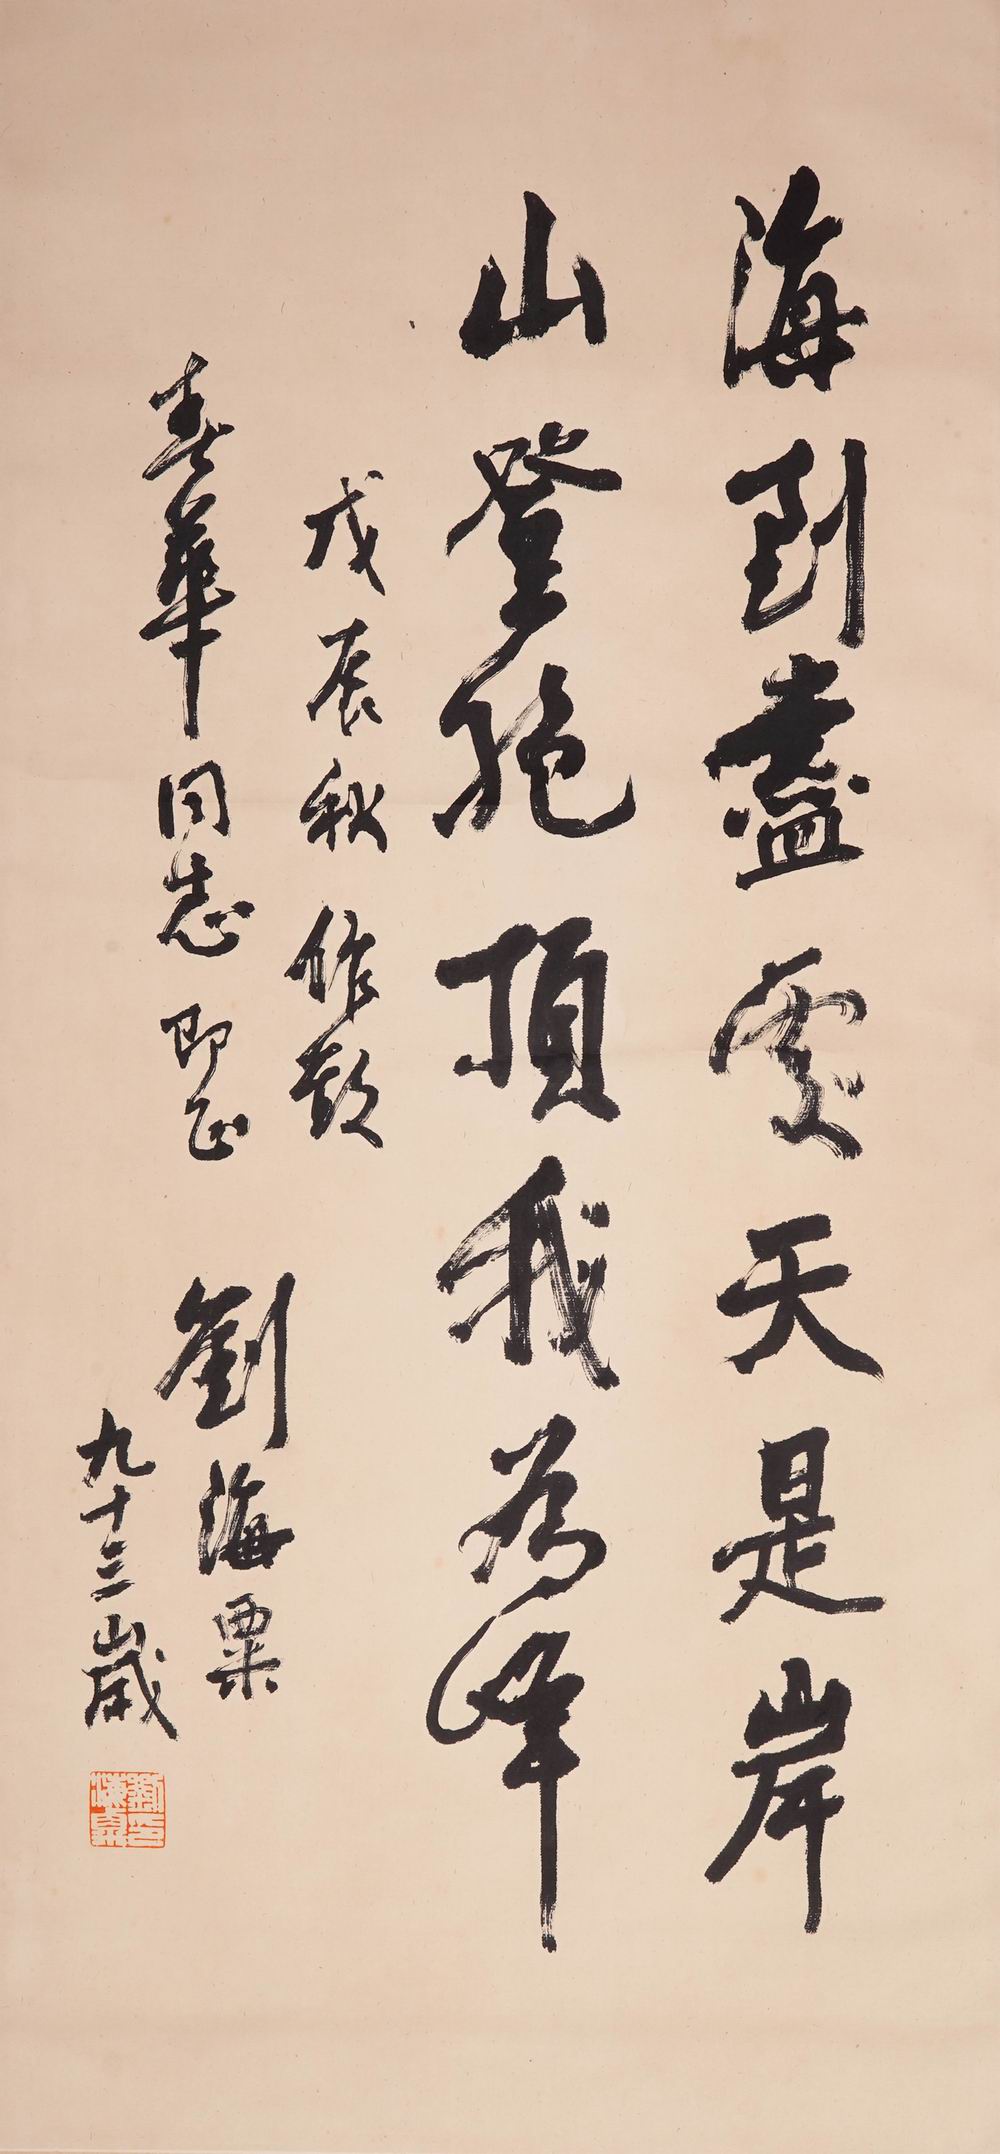 海到盡處天是岸
山登絕頂我為峰
戊辰秋作歖
春華同志即正
劉海粟
九十三歲
劉海粟印